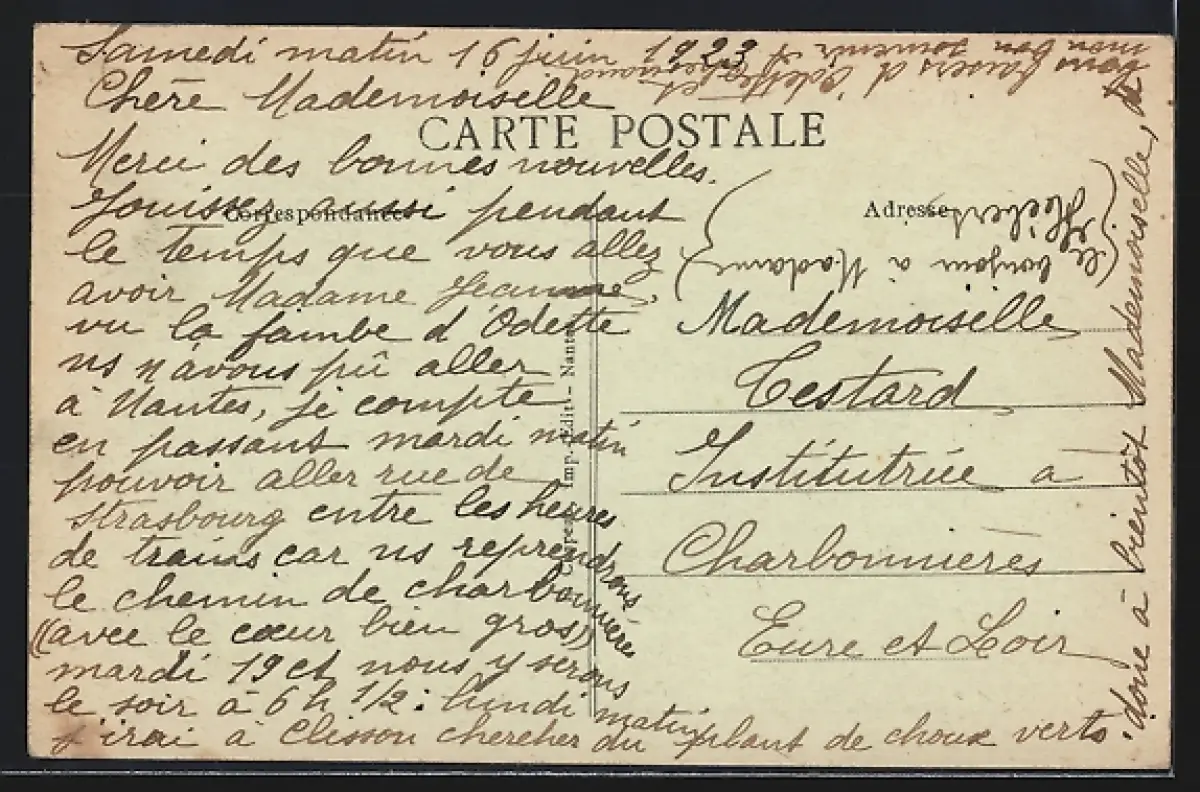 Samedi matin 16 juin 1923
Chère Mademoiselle
CARTE POSTALE
Merci des bonnes nouvelles.
Jouissez aussi pendant
Correspondance
le temps que vous allez
avoir Madame Jeanne,
vu la jambe d'Odette
ns n'avons pû aller
à Nantes, je compte
en passant mardi matin
pouvoir aller rue de
strasbourg entre les heures
de trains car ns reprendrons
le chemin de charbonnières
((avec le cœur bien gros))
mardi 19 et nous y serons
le soir à 6 h 1/2 : lundi matin
j'irai à Clisson chercher du plant de choux verts.
donc à bientôt Mademoiselle, et
vous baisers d'Odette et
mon bon souvenir
Adresse
(le bonjour à Madame
Hébert)
Mademoiselle
Testard
Institutrice à
Charbonnières
Eure et Loir
Imp.-Édit. - Nantes